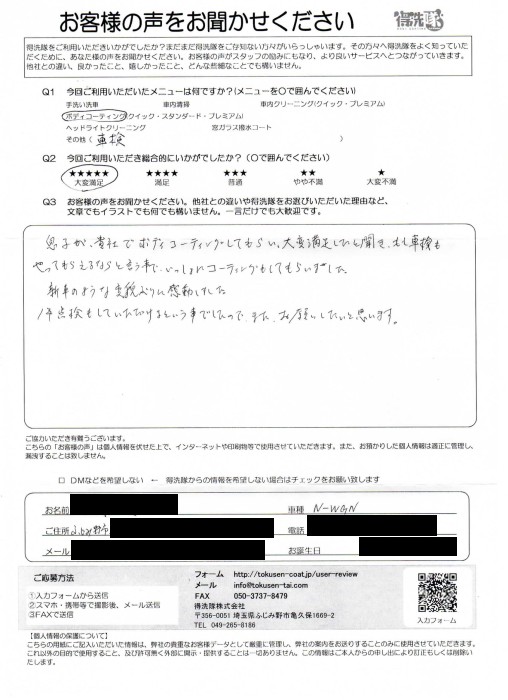 お客様の声をお聞かせください
得洗隊
得洗隊をご利用いただきいかがでしたか？まだまだ得洗隊をご存知ない方々がいらっしゃいます。その方々へ得洗隊をよく知っていた
だくために、あなた様の声をお聞かせください。お客様の声がスタッフの励みにもなり、より良いサービスへとつながっていきます。
他社との違い、良かったこと、嬉しかったこと、どんな些細なことでも構いません。
Q1 今回ご利用いただいたメニューは何ですか？(メニューを〇で囲んでください)
手洗い洗車 車内清掃 車内クリーニング(クイック・プレミアム)
ボディコーティング(クイック・スタンダード・プレミアム)
ヘッドライトクリーニング 窓ガラス撥水コート
その他( 車検 )
Q2 今回ご利用いただき総合的にいかがでしたか？（〇で囲んでください）
★★★★★ ★★★★ ★★★ ★★ ★
大変満足 満足 普通 やや不満 大変不満
Q3 お客様の声をお聞かせください。他社との違いや得洗隊をお選びいただいた理由など、
文章でもイラストでも何でも構いません。一言だけでも大歓迎です。
息子が、貴社でボディコーティングしてもらい、大変満足したと聞き、車検も
やってもらえるならと言う事で、いっしょにコーティングもしてもらいました。
新車のような変貌ぶりに感動しました
1年点検もしていただけるという事でしたので、また、お願いしたいと思います。
ご協力いただき有難うございます。
こちらの「お客様の声」は個人情報を伏せた上で、インターネットや印刷物等で使用させていただきます。また、お預かりした個人情報は適正に管理し、
漏洩することは致しません。
□ DMなどを希望しない ← 得洗隊からの情報を希望しない場合はチェックをお願い致します
お名前 車種 N-WGN
ご住所 ふじみ野市 電話
メール お誕生日
ご応募方法
①入力フォームから送信
②スマホ・携帯等で撮影後、メール送信
③FAXで送信
フォーム http://tokusen-coat.jp/user-review
メール info@tokusen-tai.com
FAX 050-3737-8479
得洗隊株式会社
〒356-0051 埼玉県ふじみ野市亀久保1669-2
TEL 049-265-8186
入力フォーム
【個人情報の保護について】
こちらの用紙にご記入いただいた情報は、弊社の貴重なお客様データとして厳重に管理し、弊社の案内をお送りすることのみに使用させていただきます。
これ以外の目的で使用すること、及び許可無く外部に開示・提供することは一切ありません。この情報はご本人からの申し出により訂正もしくは削除い
たします。